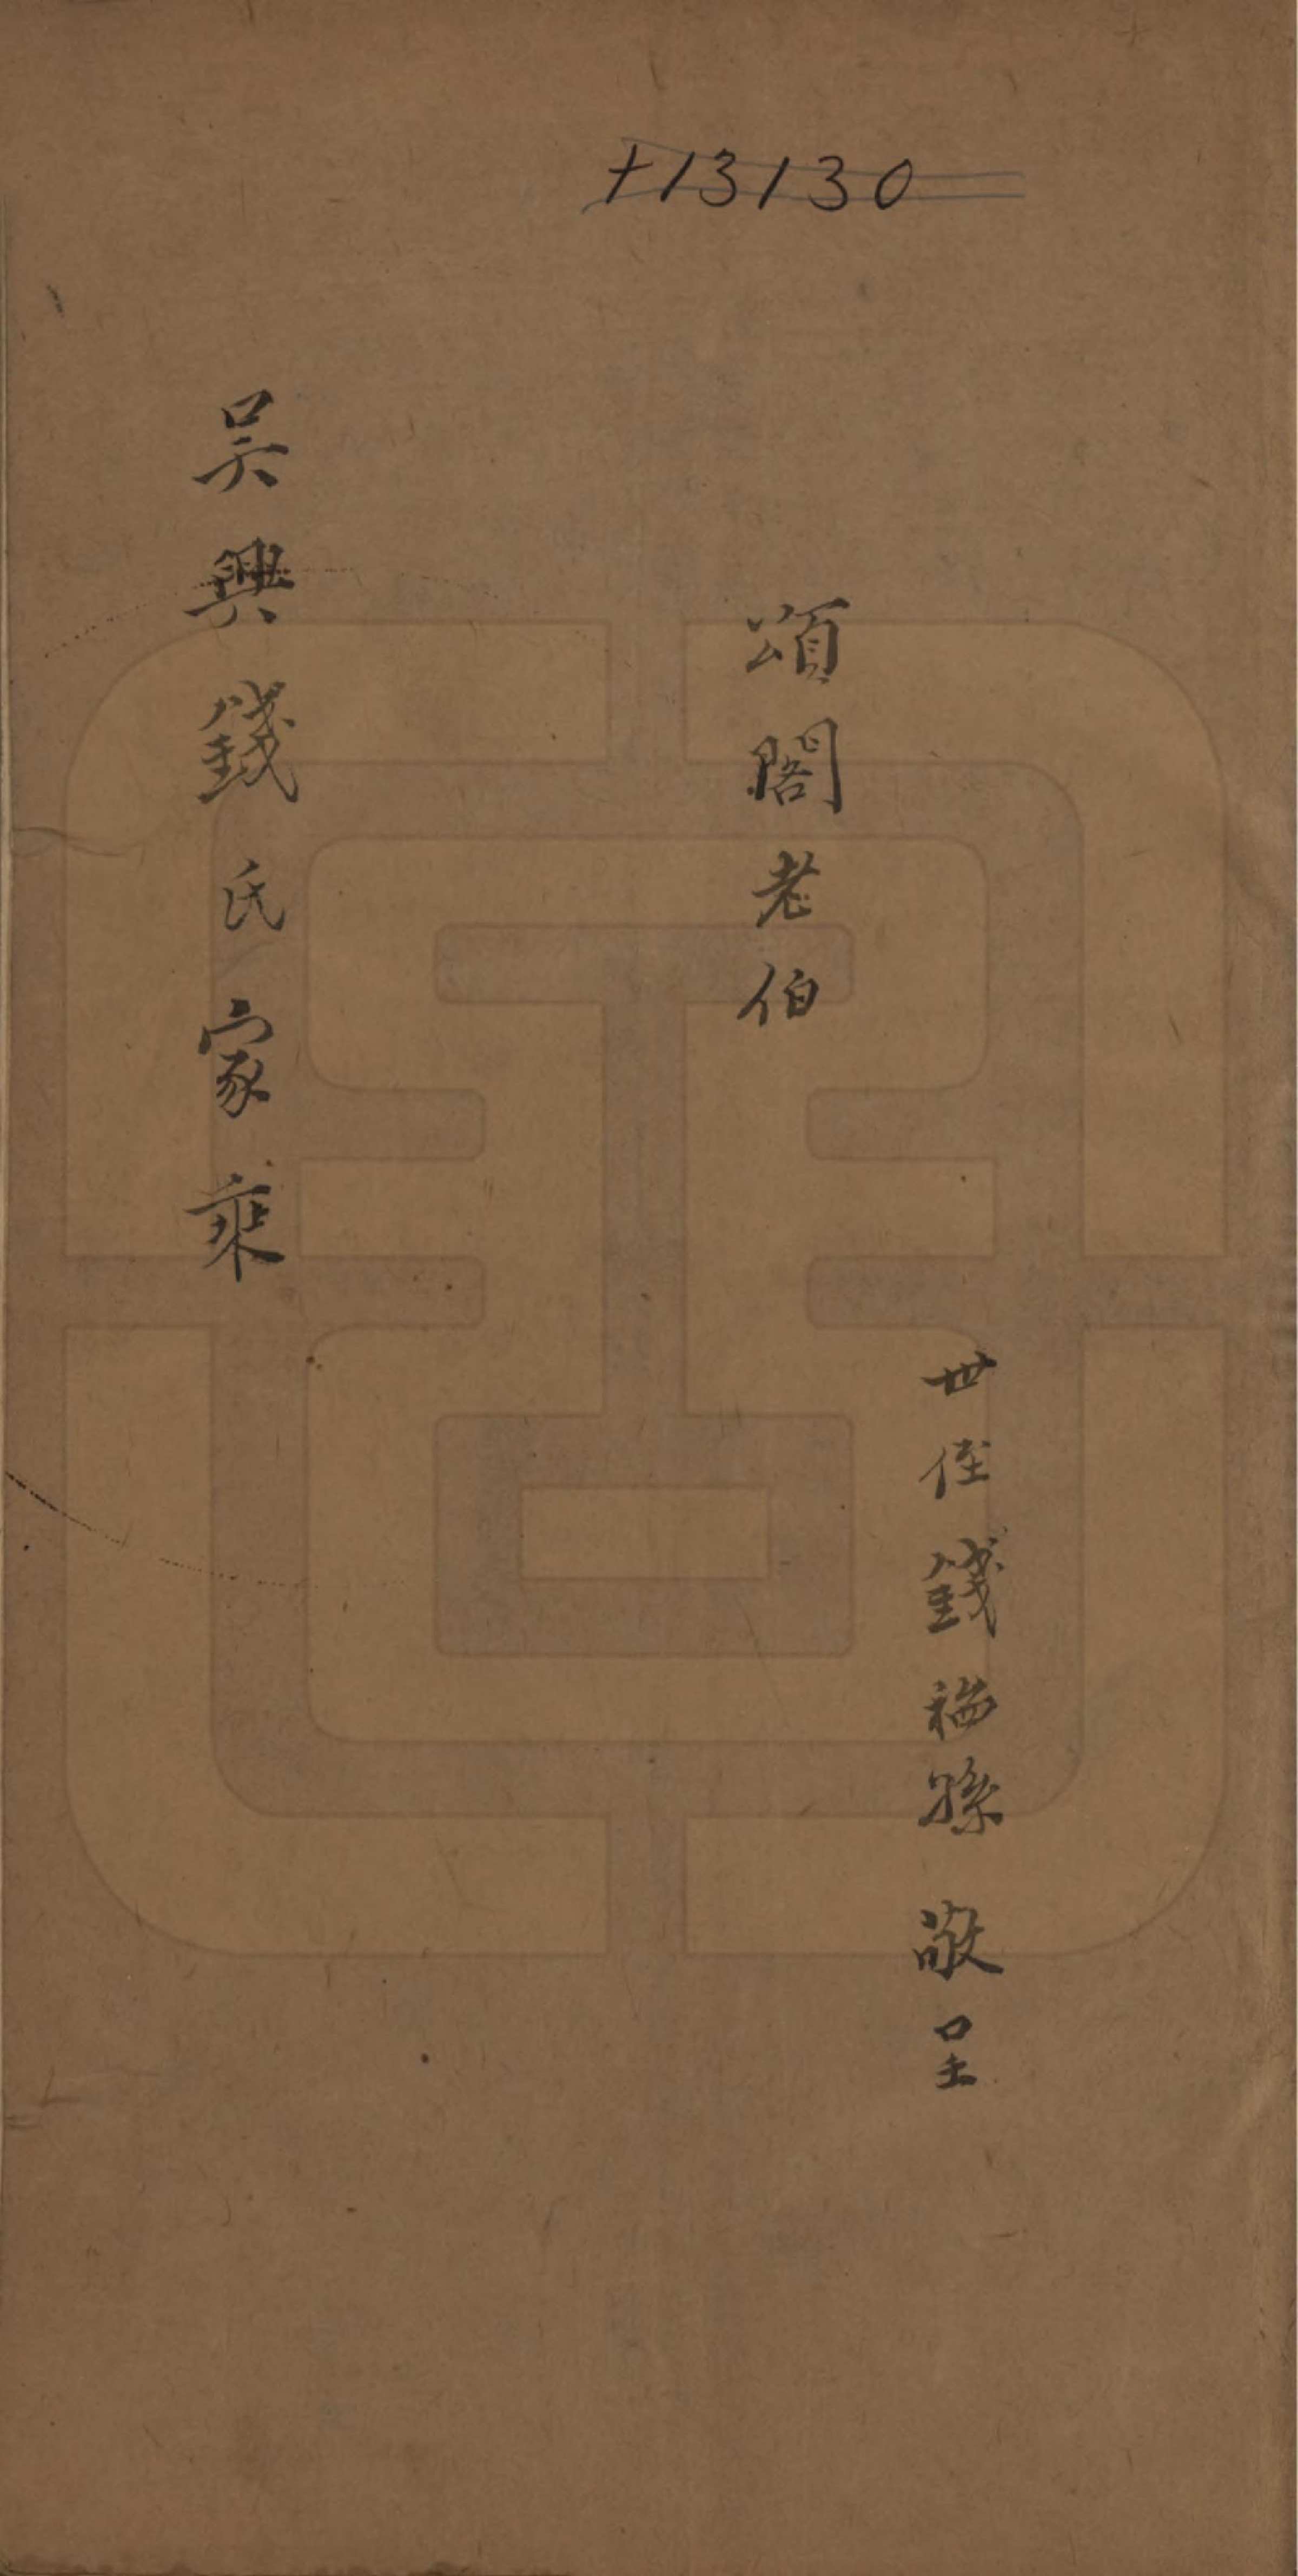 +13130
世侄錢稻孫敬呈
頌閣老伯
吴興錢氏家乘